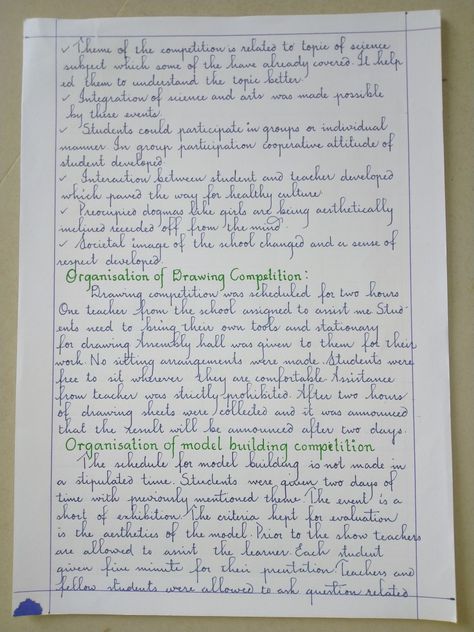 ✓ Theme of the competition is related to topic of science
subject which some of the have already covered. It help
ed them to understand the topic better.
✓ Integration of science and arts was made possible
by these events.
✓ Students could participate in groups or individual
manner. In group participation cooperative attitude of
student developed.
✓ Interaction between student and teacher developed
which paved the way for healthy culture.
✓ Preocupied dogmas like girls are being aesthetically
inclined receded off from the mind.
✓ Societal image of the school changed and a sense of
respect developed.
Organisation of Drawing Competition:
Drawing competition was scheduled for two hours.
One teacher from the school assigned to assist me. Stud-
ents need to bring their own tools and stationary
for drawing. Assembly hall was given to them for their
work. No sitting arrangements were made. Students were
free to sit wherever they are comfortable. Assistance
from teacher was strictly prohibited. After two hours
of drawing sheets were collected and it was announced
that the result will be announced after two days.
Organisation of model building competition
The schedule for model building is not made in
a stipulated time. Students were given two days of
time with previously mentioned theme. The event is a
short of exhibition. The criteria kept for evaluation
is the aesthetics of the model. Prior to the show teachers
are allowed to assist the learner. Each student
given five minute for their prentation. Teachers and
fellow students were allowed to ask question related